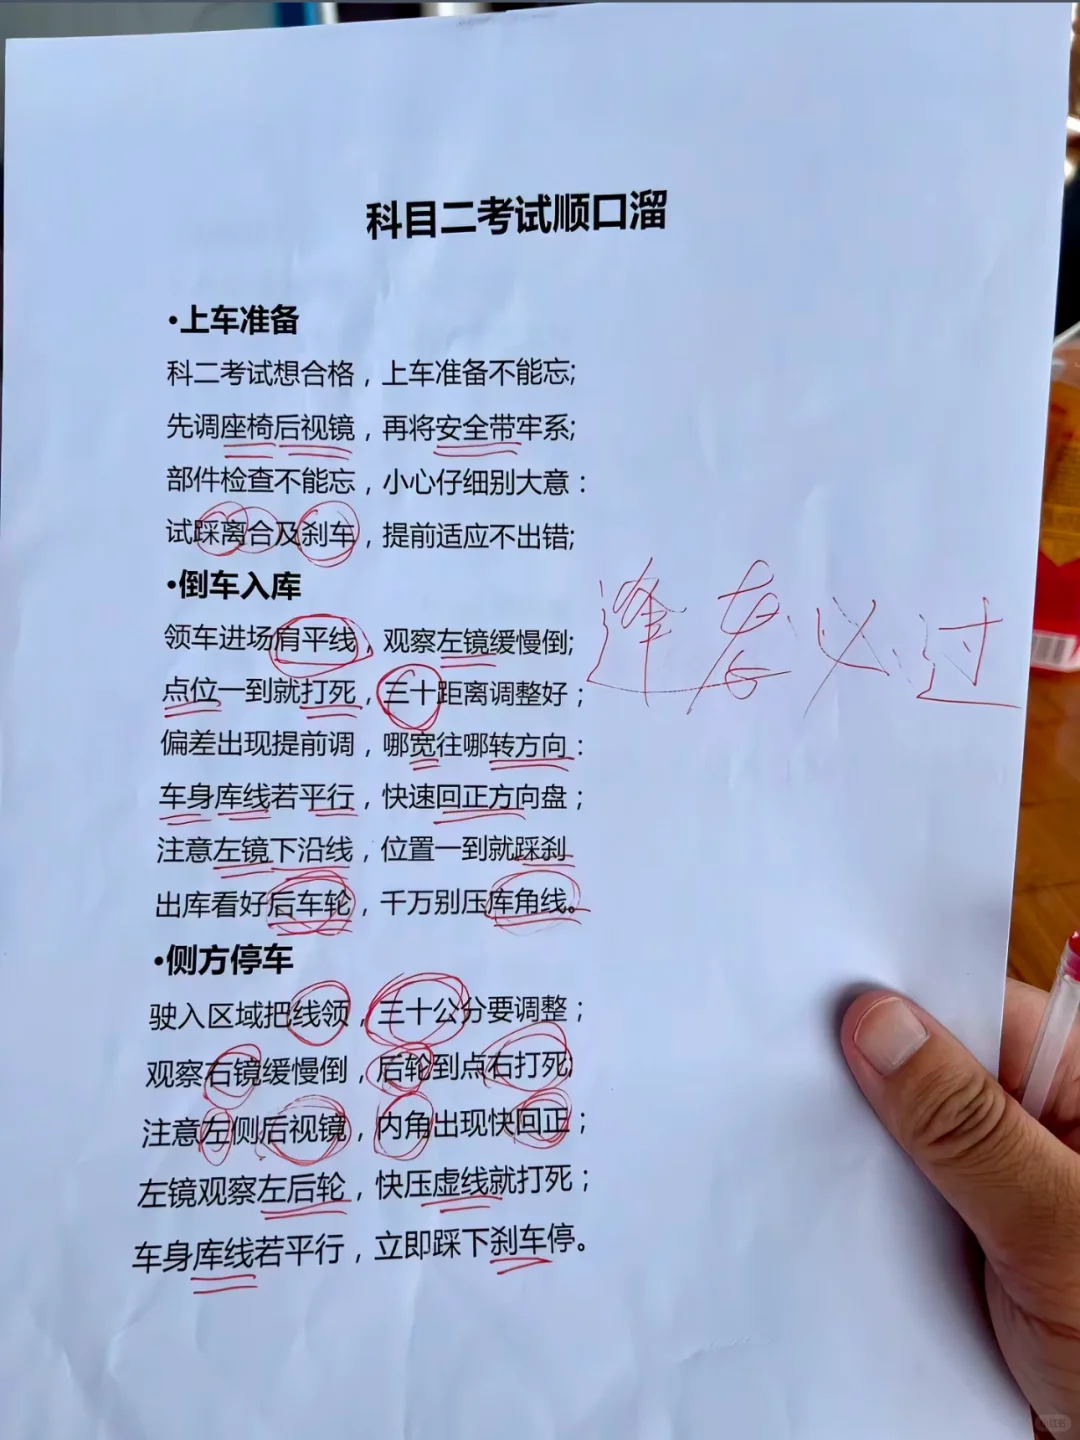 科目二考试顺口溜
•上车准备
科二考试想合格，上车准备不能忘;
先调座椅后视镜，再将安全带牢系;
部件检查不能忘，小心仔细别大意：
试踩离合及刹车，提前适应不出错;
•倒车入库
领车进场肩平线，观察左镜缓慢倒;
点位一到就打死，三十距离调整好；
偏差出现提前调，哪宽往哪转方向：
车身库线若平行，快速回正方向盘；
注意左镜下沿线，位置一到就踩刹
出库看好后车轮，千万别压库角线。
逢考必过
•侧方停车
驶入区域把线领，三十公分要调整；
观察右镜缓慢倒，后轮到点右打死;
注意左侧后视镜，内角出现快回正；
左镜观察左后轮，快压虚线就打死；
车身库线若平行，立即踩下刹车停。
小红书